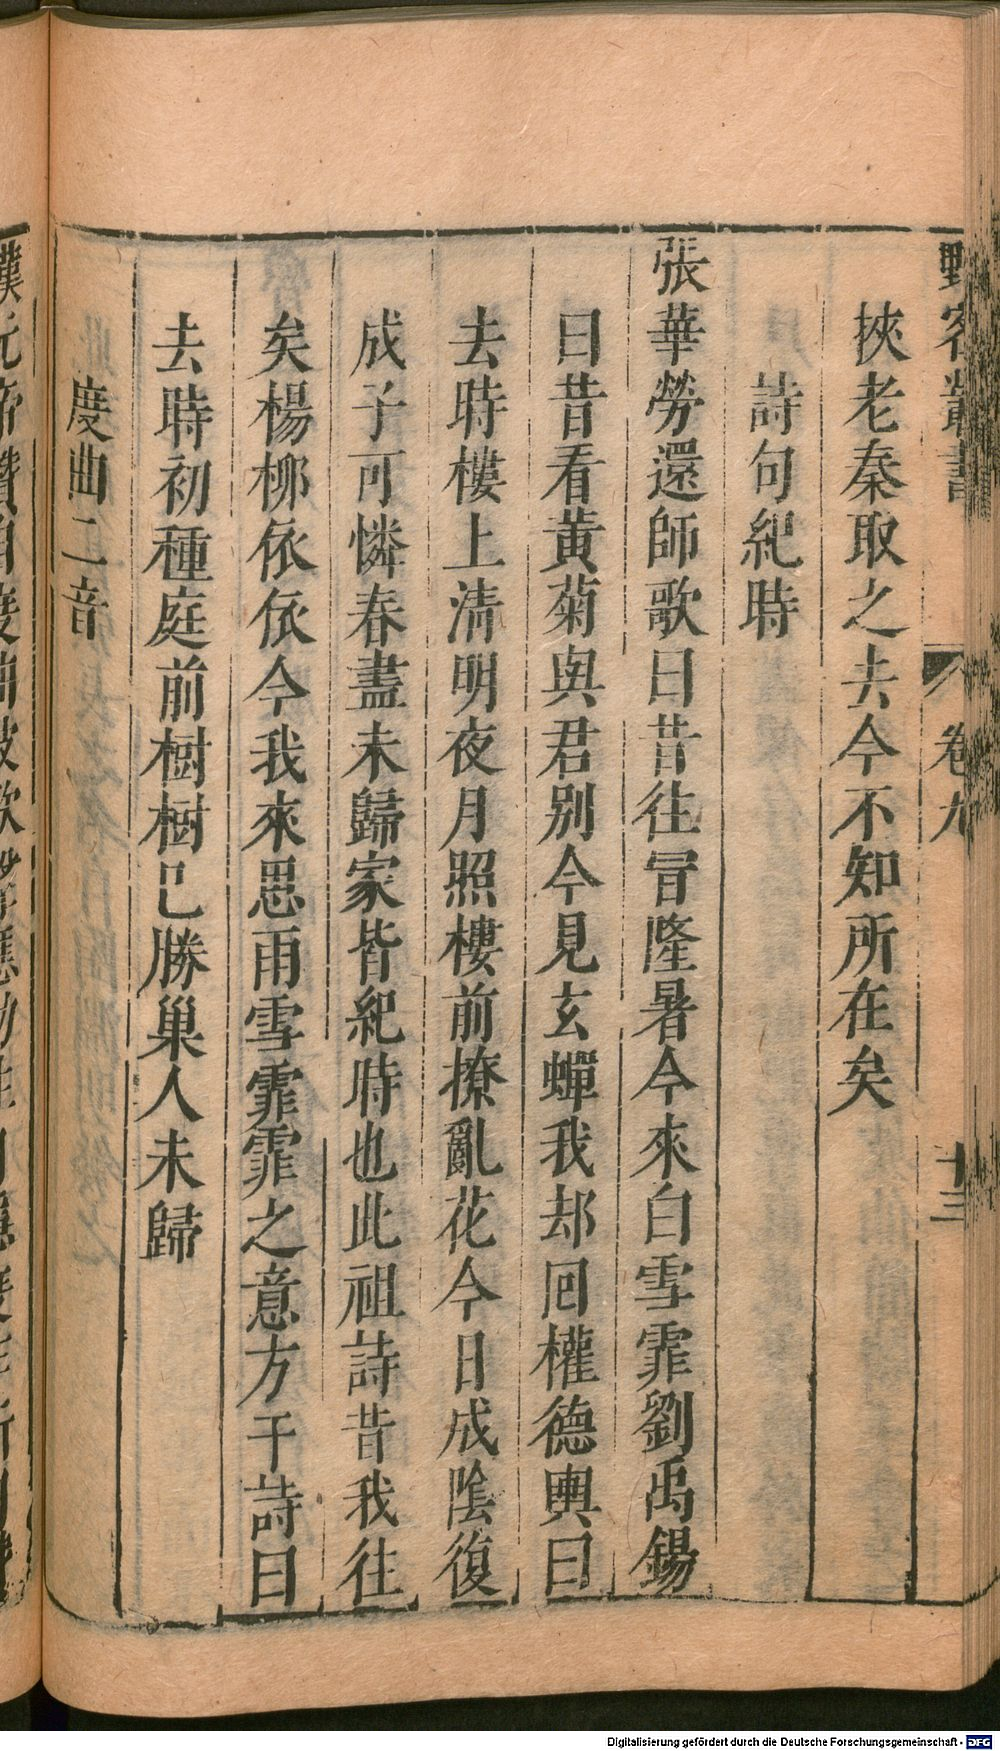 野客叢書 卷九 十三
挾老秦取之去今不知所在矣
詩句紀時
張華勞還師歌曰昔往冒隆暑今來白雪霏劉禹錫
曰昔看黃菊與君别今見玄蟬我却回權德輿曰
去時樓上清明夜月照樓前撩亂花今日成陰復
成子可憐春盡未歸家皆紀時也此祖詩昔我往
矣楊柳依依今我來思雨雪霏霏之意方干詩曰
去時初種庭前樹樹已勝巢人未歸
度曲二音
漢元帝贊自度曲被歌聲應劭注
Digitalisierung gefördert durch die Deutsche Forschungsgemeinschaft - DFG